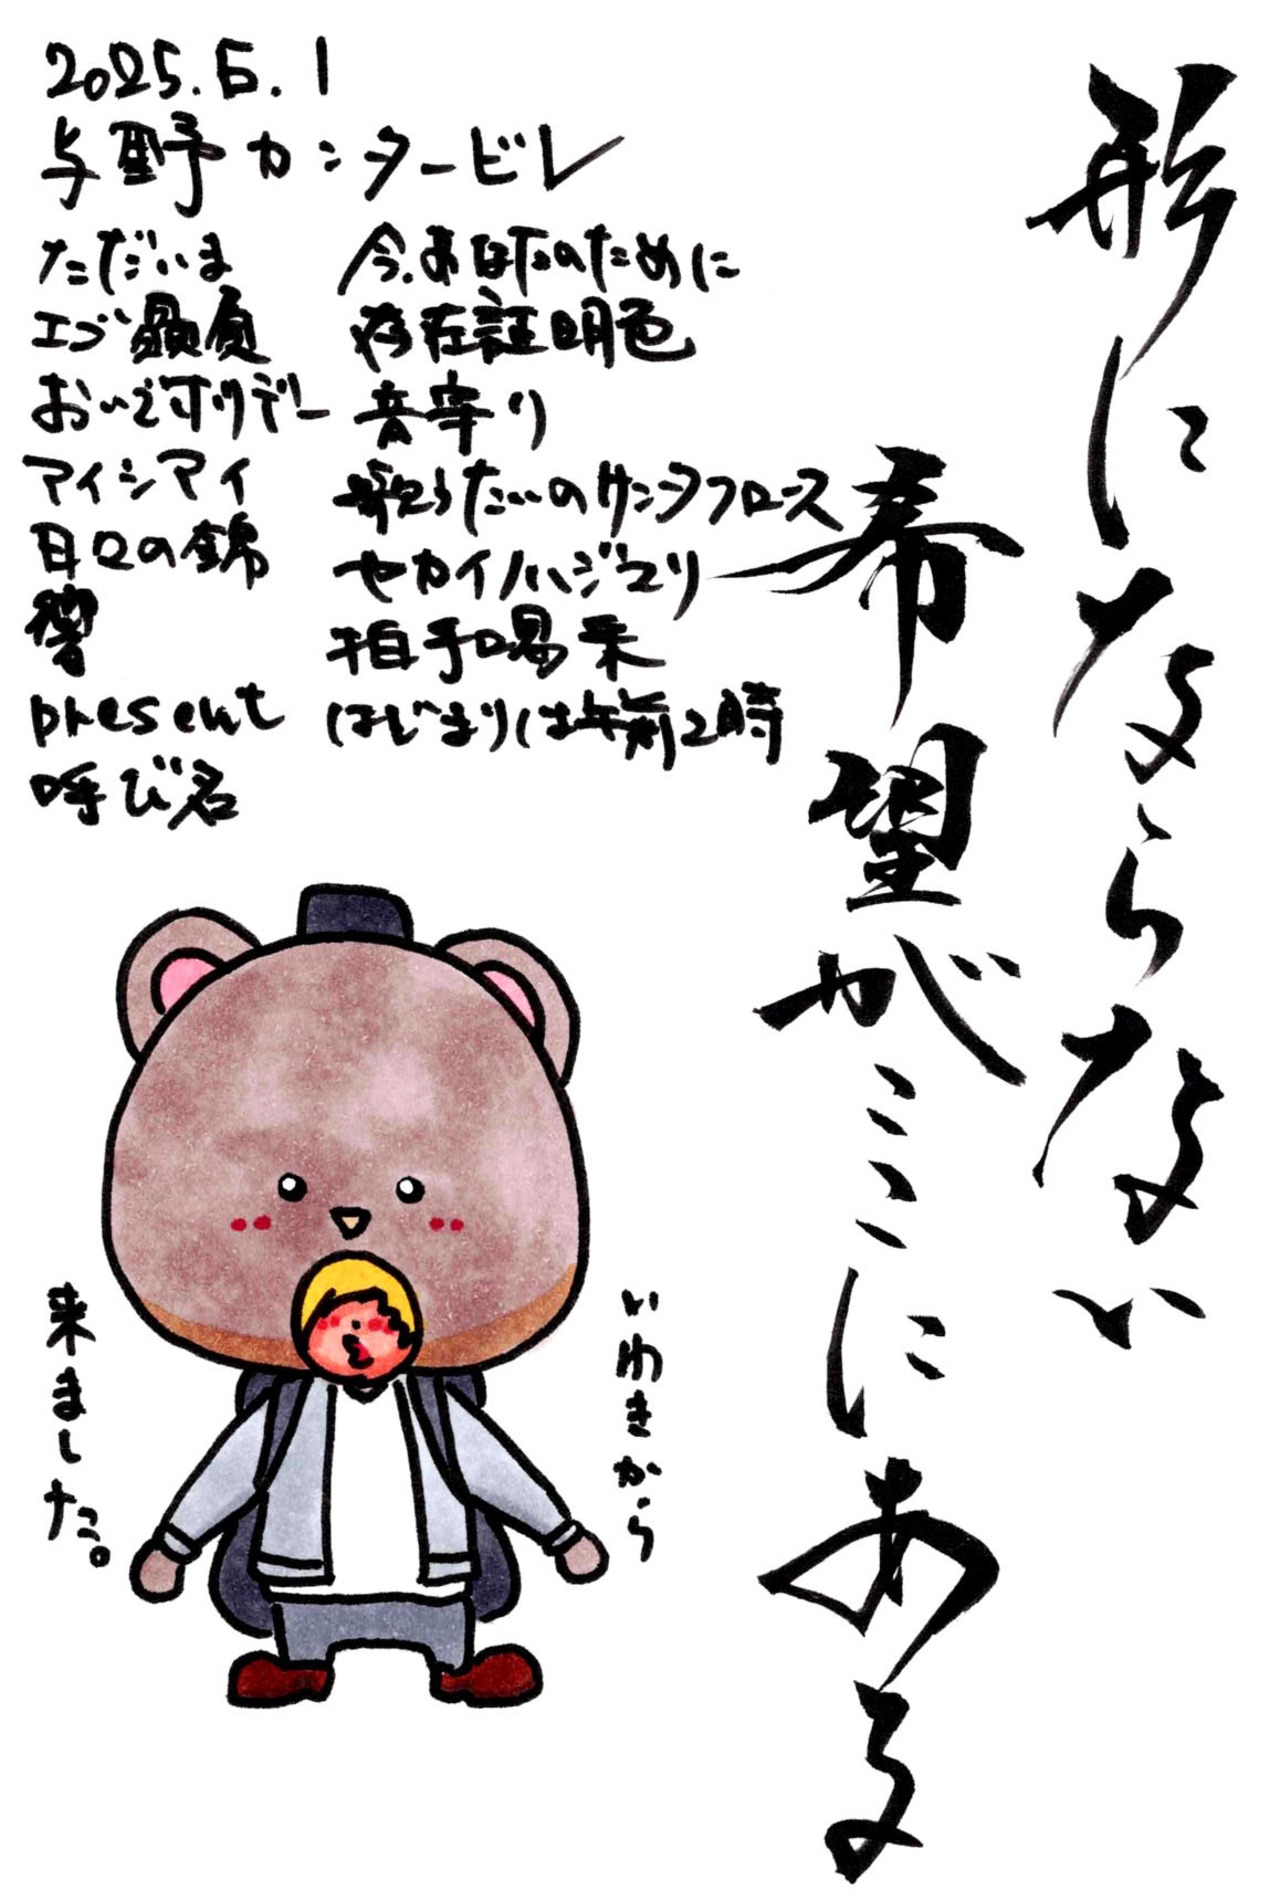 2025.6.1
与野カンタービレ
ただいま
エゴ贔屓
おいでホリデー
アイシマイ
日々の錦
響
present
呼び名
今、あなたのために
存在証明色
音寄り
歌うたいのサンタフロース
セカイノハジマリ
拍手喝采
はじまりは午前2時
形にならない
希望がここにある
いわきから
来ました。